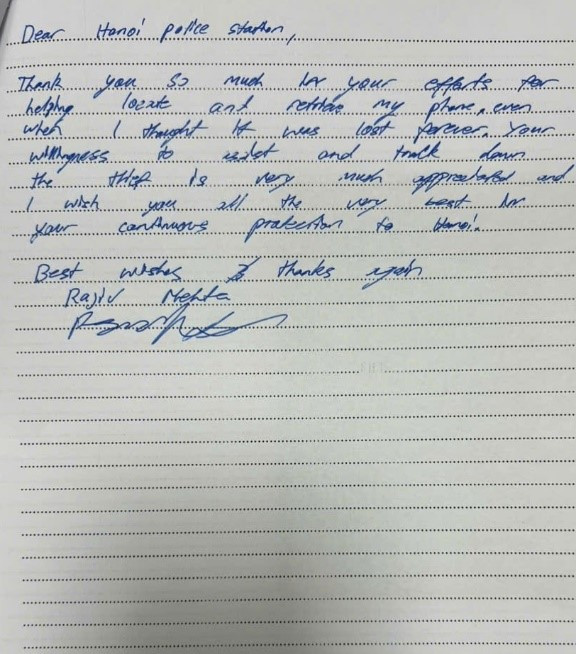 Dear Hanoi police station,
Thank you so much for your efforts for
helping locate and retrieve my phone, even
when I thought it was lost forever. Your
willingness to assist and track down
the thief is very much appreciated and
I wish you all the very best in
your continuous protection to Hanoi.
Best wishes & thanks again
Rajiv Mehta